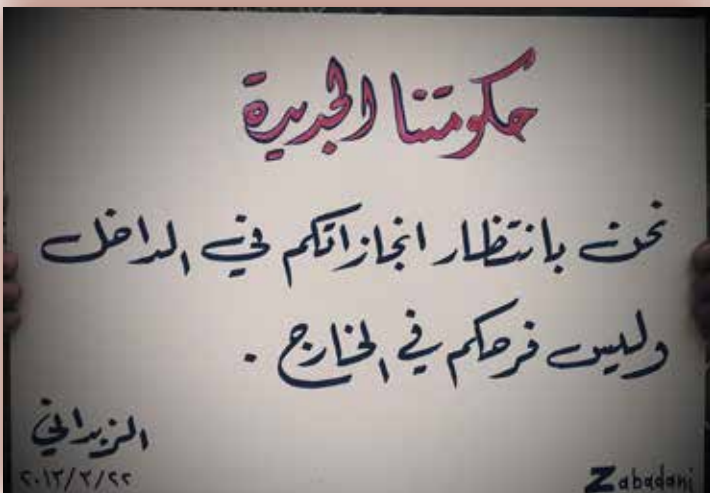 حكومتنا الجديدة
نحن بانتظار انجازاتكم في الداخل
وليس فرحكم في الخارج .
الزبداني
٢٠١٣/٣/٢٢
Zabadani